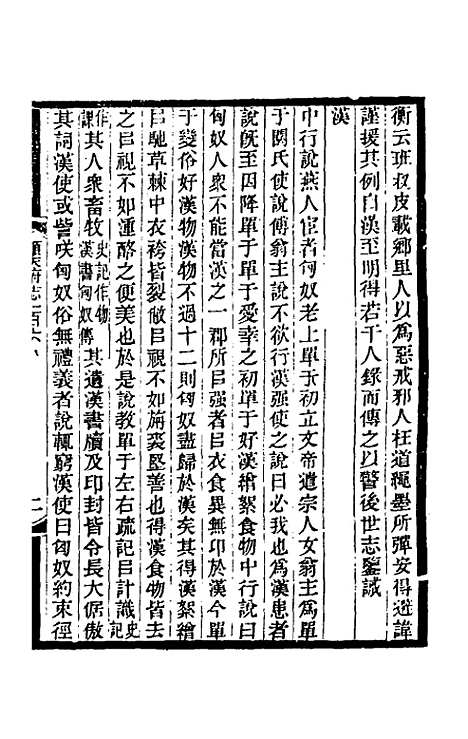 衡云班叔皮載鄉里人以爲惡戒邪人枉道繩墨所彈安得避諱
謹援其例自漢至明得若干人錄而傳之以警後世志鑒誡
漢
中行說燕人宦者匈奴老上單于初立文帝遣宗人女翁主爲單
于閼氏使說傅翁主說不欲行漢强使之說曰必我也爲漢患者
說旣至因降單于單于愛幸之初單于好漢繒絮食物中行說曰
匈奴人衆不能當漢之一郡所㠯强者㠯衣食異無卬於漢今單
于變俗好漢物漢物不過十二則匈奴盡歸於漢矣其得漢絮繒
㠯馳草棘中衣袴皆裂敝㠯視不如旃裘堅善也得漢食物皆去
之㠯視不如湩酪之便美也於是說教單于左右疏記㠯計識史記
作課其人衆畜牧史記作物漢書匈奴傳其遺漢書牘及印封皆令長大倨傲
其詞漢使或訾咲匈奴俗無禮義者說輒窮漢使曰匈奴約束徑
順天府志一百六
二